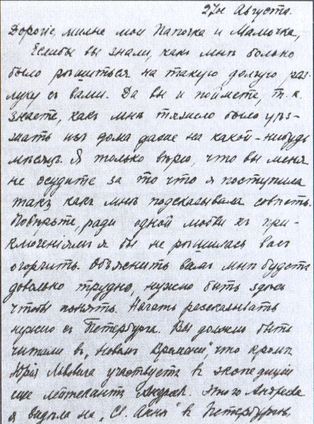 27го Августа.
Дорогiе, милые мои Папочка и Мамочка,
Еслибы вы знали, какъ мнѣ больно
было рѣшиться на такую долгую раз-
луку съ вами. Да вы и поймете, т.к.
знаете, какъ мнѣ тяжело было уѣз-
жать изъ дома даже на какой-нибудь
мѣсяцъ. Я только вѣрю, что вы меня
не осудите за то что я поступила
такъ какъ мнѣ подсказывала совѣсть.
Повѣрьте, ради одной любви къ при-
ключенiямъ я бы не рѣшилась васъ
огорчить. Объяснить вамъ мнѣ будетъ
довольно трудно, нужно быть здѣсь
чтобы понять. Начать разсказывать
нужно съ Петербурга. Вы должно быть
читали въ „Новомъ Времени", что кромѣ
Юрiя Львовича участвуетъ въ экспедицiи
еще лейтенантъ Андреевъ. Этого Андреева
я видѣла на „Св. Аннѣ" въ Петербургѣ